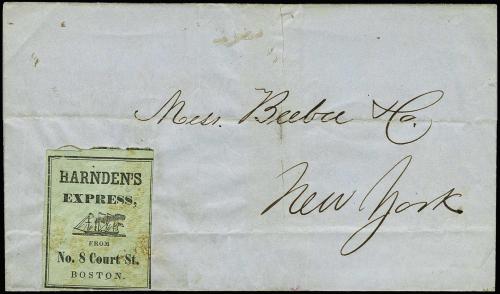 Mess. Beebee & Co.
New York
HARNDEN'S
EXPRESS,
FROM
No. 8 Court St.
BOSTON.